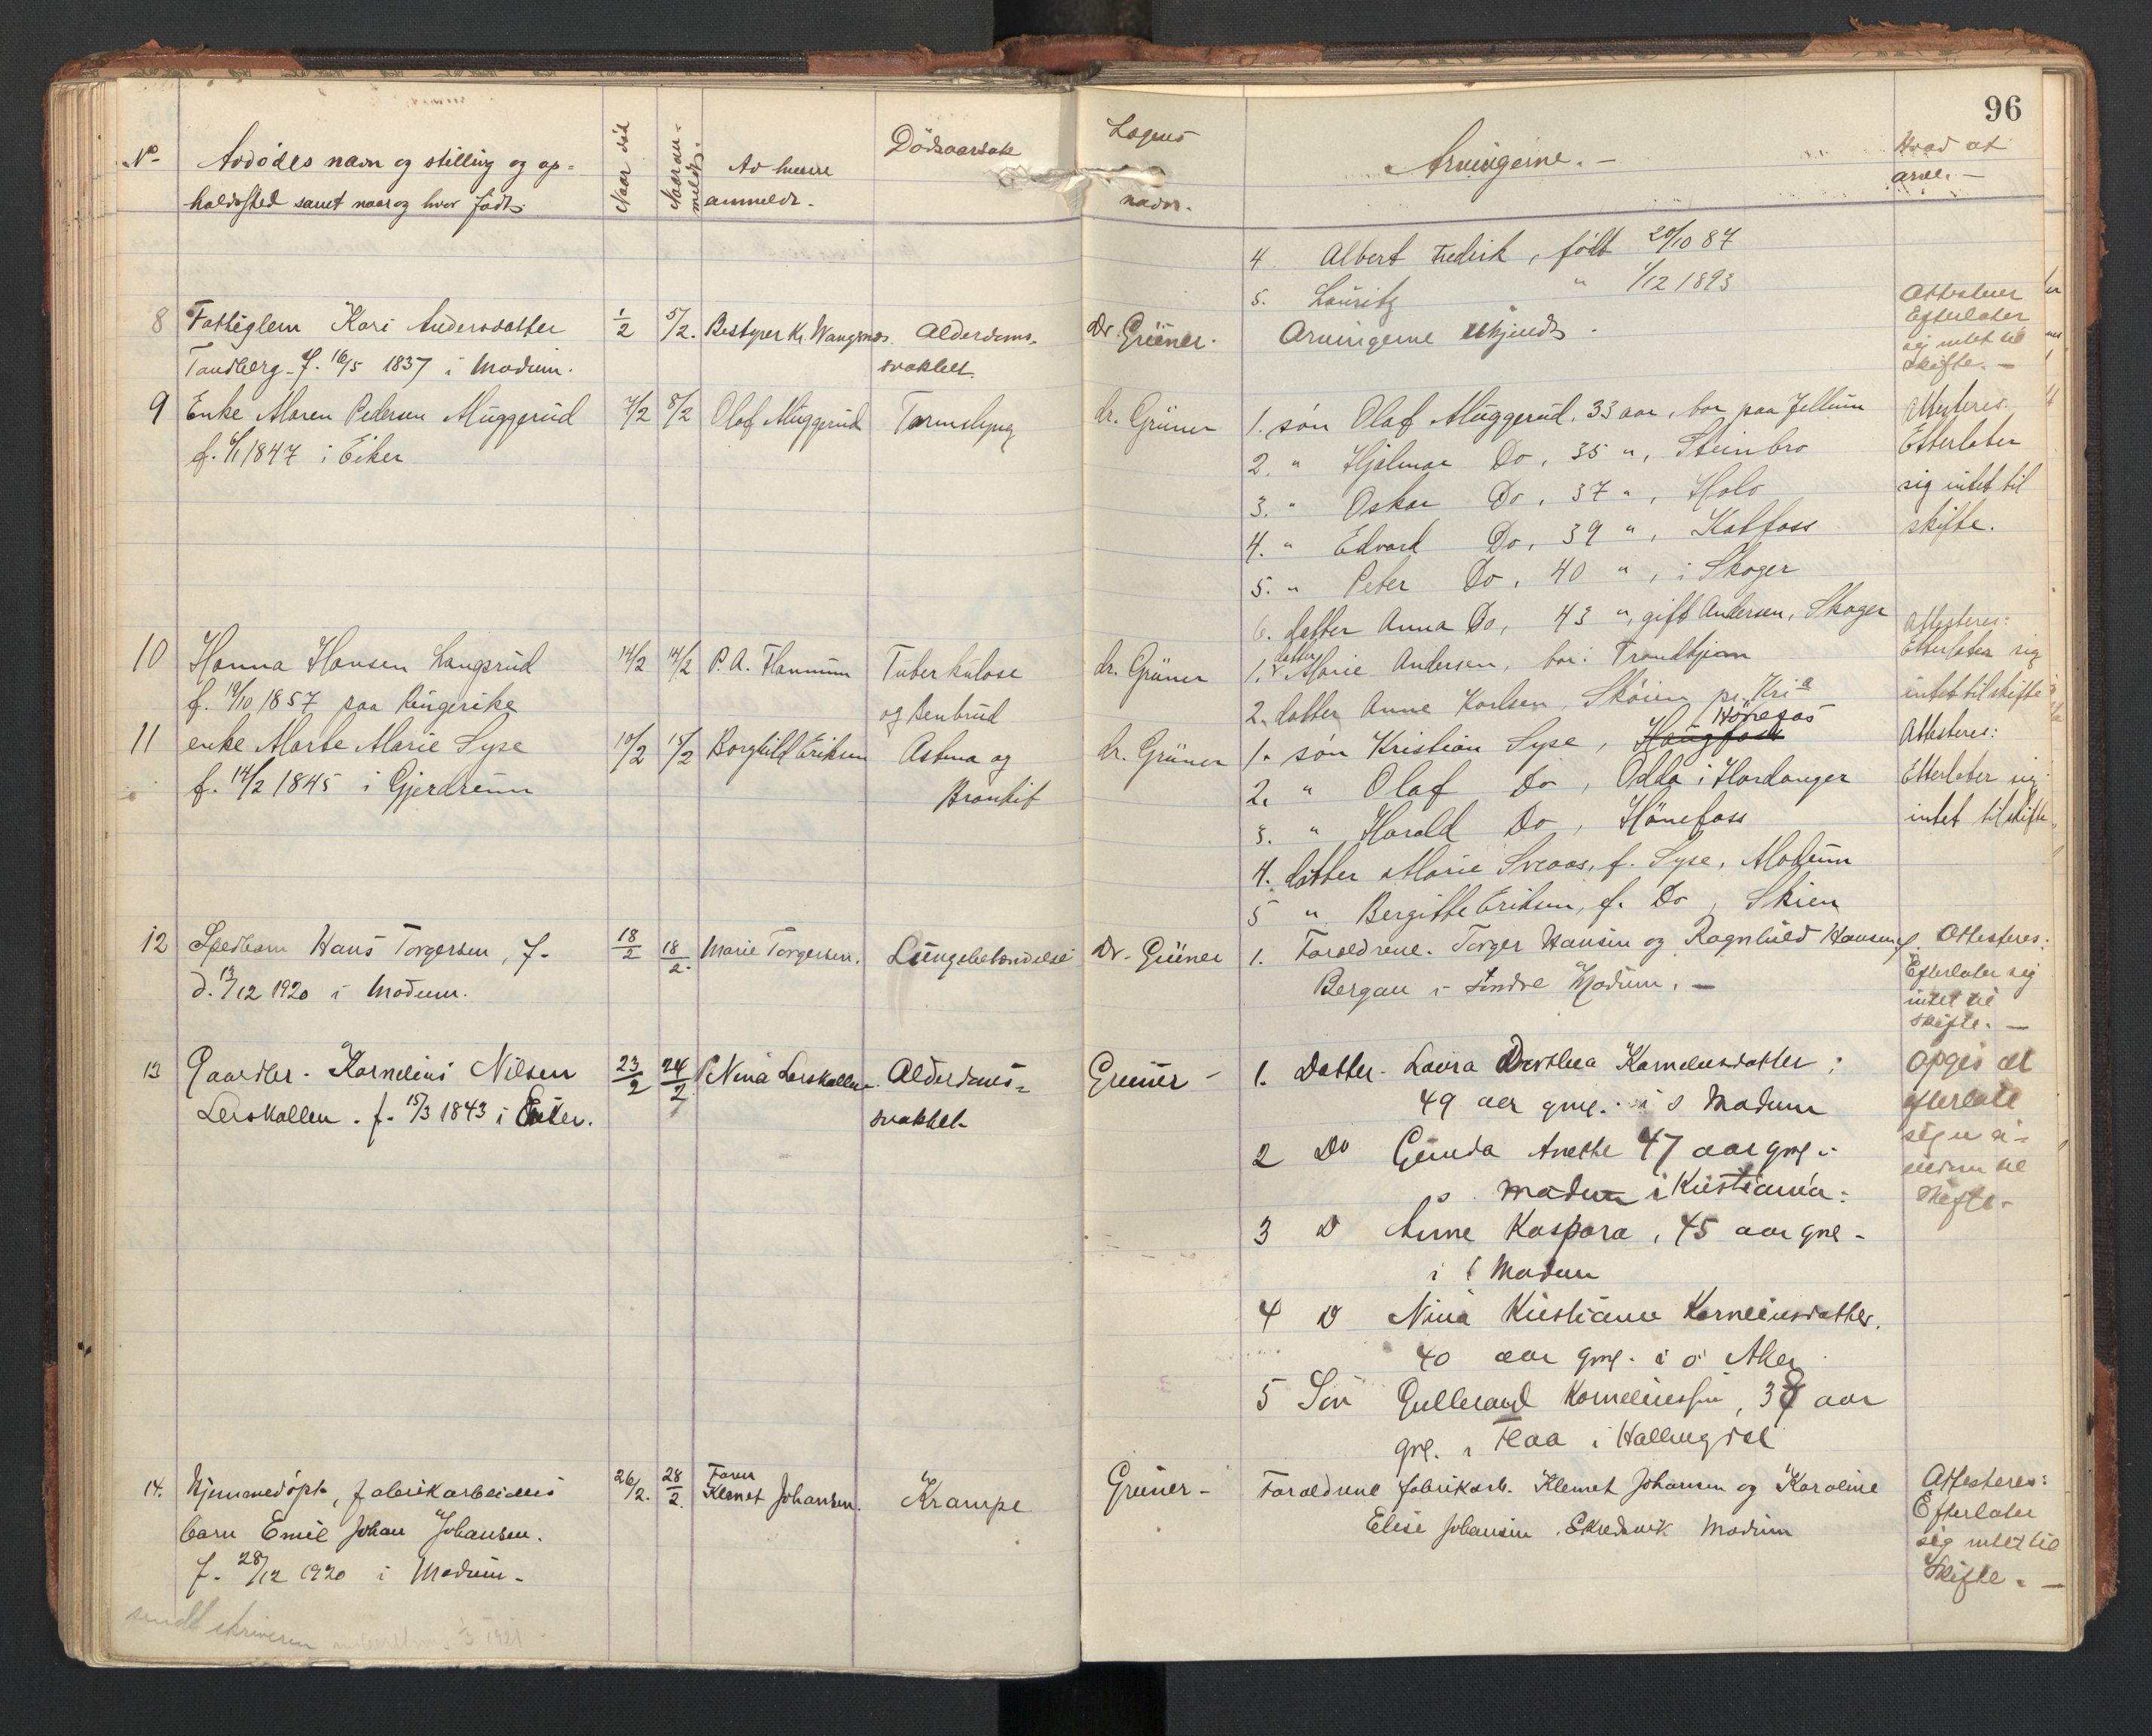 96
No Avdödes navn og stilling og op-
holdssted samt naar og hvor födt.
Naar död
Naar an-
meldt.
Av hvem
anmeldt.
Dödsaarsak
Lægens
navn.
Arvingerne. -
Hvad at
arve. -
4 Albert Fredrik, født 20/10 87
5. Lauritz " 1/12 1893
8 Fattiglem Kari Andersdatter
Tandberg. f. 16/5 1837 i Modum.
1/2
5/2.
Bestyrer Kr. Wangsnes.
Alderdoms-
svakhet.
Dr. Grüner.
Arvingerne ukjendt.
Attesteres
Efterlater
sig intet til
Skifte. -
9 Enke Maren Pedersen Muggerud
f. 6/1 1847 i Eiker
7/2
8/2
Olaf Muggerud
Tarmslyng
dr. Grüner
1. sön Olaf Muggerud, 33 aar, bor paa Jellum
2. " Hjalmar Do, 35 ", Steinbro
3. " Oskar Do, 37 ", Holo
4. " Edvard Do, 39 ", Katfoss
5. " Peter Do, 40 ", i Skoger
6. datter Anna Do, 43 ", gift Andersen, Skoger
Attesteres.
Etterlater
sig intet til
skifte.
10 Hanna Hansen Langsrud
f. 19/10 1857 paa Ringerike
14/2
14/2
P. A. Flannum
Tuberkulose
og Benbrud
dr. Grüner
1. datter Marie Andersen, bor i Trondhjem
2. datter Anne Karlsen, Skôien pr. Kria
Attesteres:
Etterlater sig
intet til skifte
11 enke Marte Marie Lyse
f. 14/2 1845 i Gjerdrum
10/2
15/2
Borghild Eriksen
Astma og
Bronkit
dr. Grüner
1. sön Kristian Lyse, Haugfoss Hönefos
2. " Olaf Do, Odda i Hardanger
3. " Harald Do, Hönefoss
4. datter Marie Sveaas, f. Lyse, Modum
5 " Bergitte Eriksen, f. Do, Skien
Attesteres:
Etterlater sig
intet til skifte
12 Spedbarn Hans Torgersen, f.
d. 13/12 1920 i Modum.
18/2
18/2.
Marie Torgersen.
Lungebetændelse
Dr. Grüner
1. Foraldrene. Torger Hansen og Ragnhild Hansen f.
Bergan i Söndre Modum. -
Attesteres:
Efterlater sig
intet til
Skifte. -
13 Gaardbr. Kornelius Nilsen
Lerskallen. f. 15/3 1843 i Eiker.
23/2
24/2
Nina Lerskallen.
Alderdoms-
svakhet.
Grüner -
1. Datter. Laura Dorthea Korneliusdatter;
49 aar gml. i s Modum
2 Do Gunda Anethe 47 aar gml i
s. modum i Kristiania.
3 D Anne Kaspara, 45 aar gml -
i Modum
4 D Nina Kristiane Korneliusdatter.
40 aar gml. i Ö Aker
5 Sön Gulbrand Korneliussen, 38 aar
gml. i Flaa i Hallingdal
Opgis at
efterlate
sig
til
Skifte.
14. Hjemmedöpt, fabrikarbeiders
barn Emil Johan Johansen.
f. 28/12 1920 i Modum -
26/2.
28/2.
Faren
Klemet Johansen.
Krampe
Grüner -
Foraldrene fabrikarb. Klemet Johansen og Karoline
Elise Johansen. Skredsvik Modum
Attesteres:
Efterlater
sig intet til
Skifte. -
sendt skriveren 1/3 1921